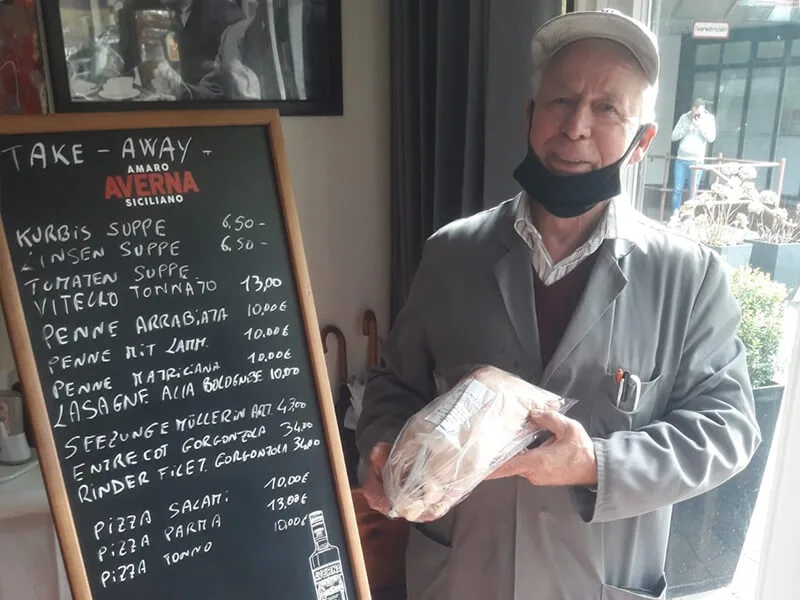 TAKE - AWAY -
AMARO
AVERNA
SICILIANO
KURBIS SUPPE 6,50-
LINSEN SUPPE 6,50-
TOMATEN SUPPE
VITELLO TONNATO 13,00
PENNE ARRABIATA 10,00€
PENNE MIT LAMM. 10,00€
PENNE MATRICIANA 10,00€
LASAGNE ALLA BOLOGNESE 10,00
SEEZUNGE MÜLLERIN ART. 43,00
ENTRECOT GORGONZOLA 34,00
RINDER FILET GORGONZOLA 34,00
PIZZA SALAMI 10,00€
PIZZA PARMA 13,00€
PIZZA TONNO 10,00€
AVERNA
Feuerwehrzufahrt